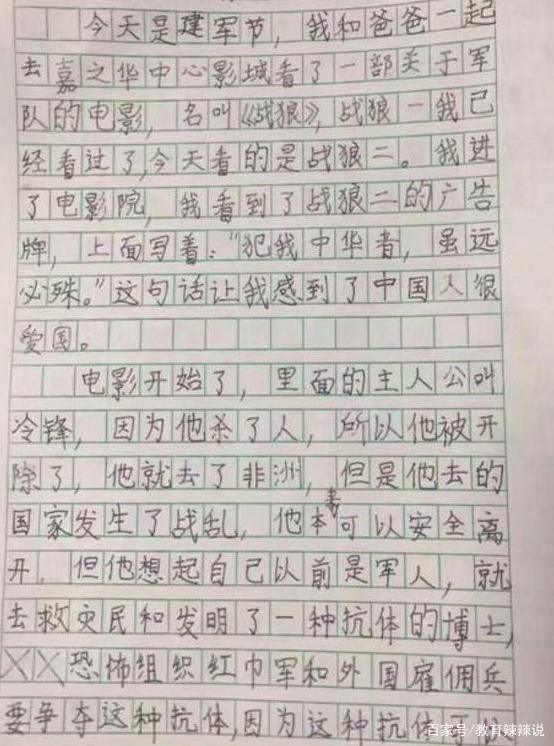 今天是建军节，我和爸爸一起
去嘉之华中心影城看了一部关于军
队的电影，名叫《战狼》，战狼一我已
经看过了，今天看的是战狼二。我进
了电影院，我看到了战狼二的广告
牌，上面写着："犯我中华者，虽远
必殊。"这句话让我感到了中国人很
爱国。
电影开始了，里面的主人公叫
冷锋，因为他杀了人，所以他被开
除了，他就去了非洲，但是他去的
国家发生了战乱，他本来可以安全离
开，但他想起自己以前是军人，就
去救灾民和发明了一种抗体的博士，
恐怖组织红巾军和外国雇佣兵
要争夺这种抗体，因为这种抗体可
百家号/教育辣辣说